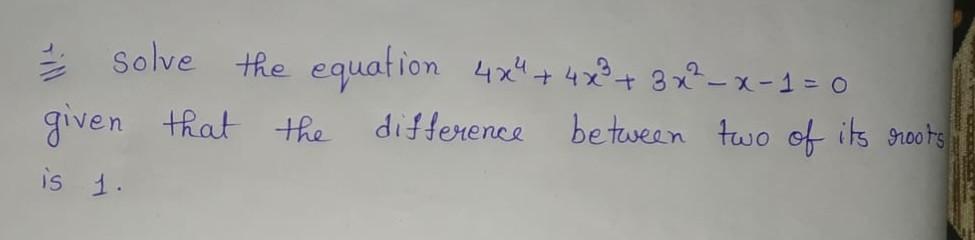 1. solve the equation 4x⁴ + 4x³ + 3x² - x - 1 = 0
given that the difference between two of its roots
is 1.